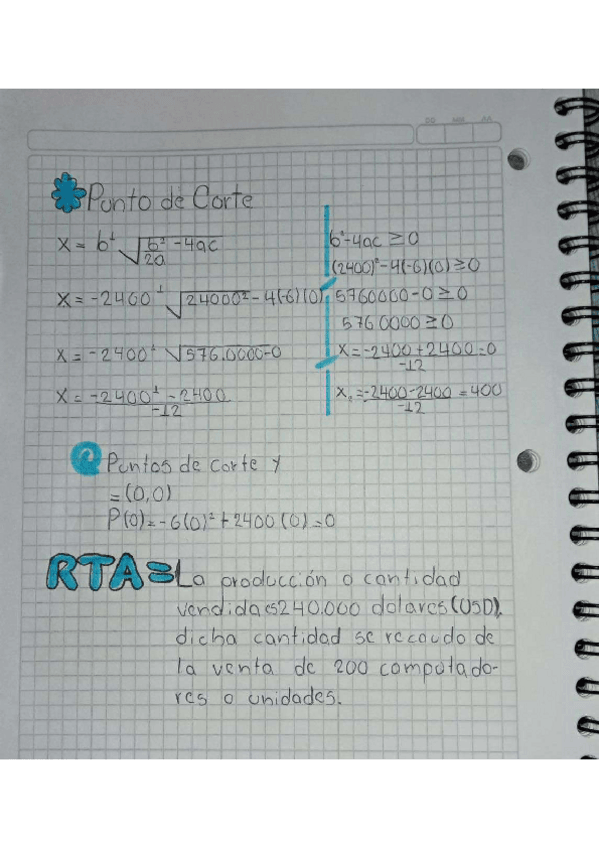 Punto de Corte
x = b± √b²-4ac
2a
x = -2400± √24000²-4(-6)(0)
x = -2400± √576.0000-0
x = -2400± -2400
-12
b²-4ac ≥ 0
(2400)²-4(-6)(0) ≥ 0
5760000-0 ≥ 0
576.0000 ≥ 0
x = -2400+2400 = 0
-12
x₂ = -2400-2400 = 400
-12
Puntos de corte y
= (0,0)
P(0) = -6(0)²+2400(0) = 0
RTA = La producción o cantidad
vendida es 240.000 dolares (USD),
dicha cantidad se recaudo de
la venta de 200 computado-
res o unidades.